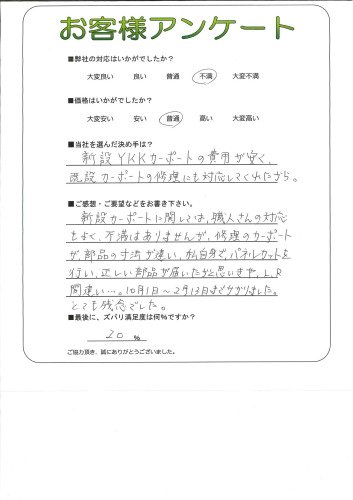 お客様アンケート
■弊社の対応はいかがでしたか?
大変良い 良い 普通 不満 大変不満
■価格はいかがでしたか?
大変安い 安い 普通 高い 大変高い
■当社を選んだ決め手は?
新設YKKカーポートの費用が安く、
既設カーポートの修理にも対応してくれたから。
■ご感想・ご要望などをお書き下さい。
新設カーポートに関しては、職人さんの対応
もよく、不満はありませんが、修理のカーポート
が、部品の寸法が違い、私自身で、パネルカットを
行い、正しい部品が届いたかと思いきや、L、R
間違い…。10月1日~2月13日までかかりました。
とても残念でした。
■最後に、ズバリ満足度は何%ですか?
20 %
ご協力頂き、誠にありがとうございました。